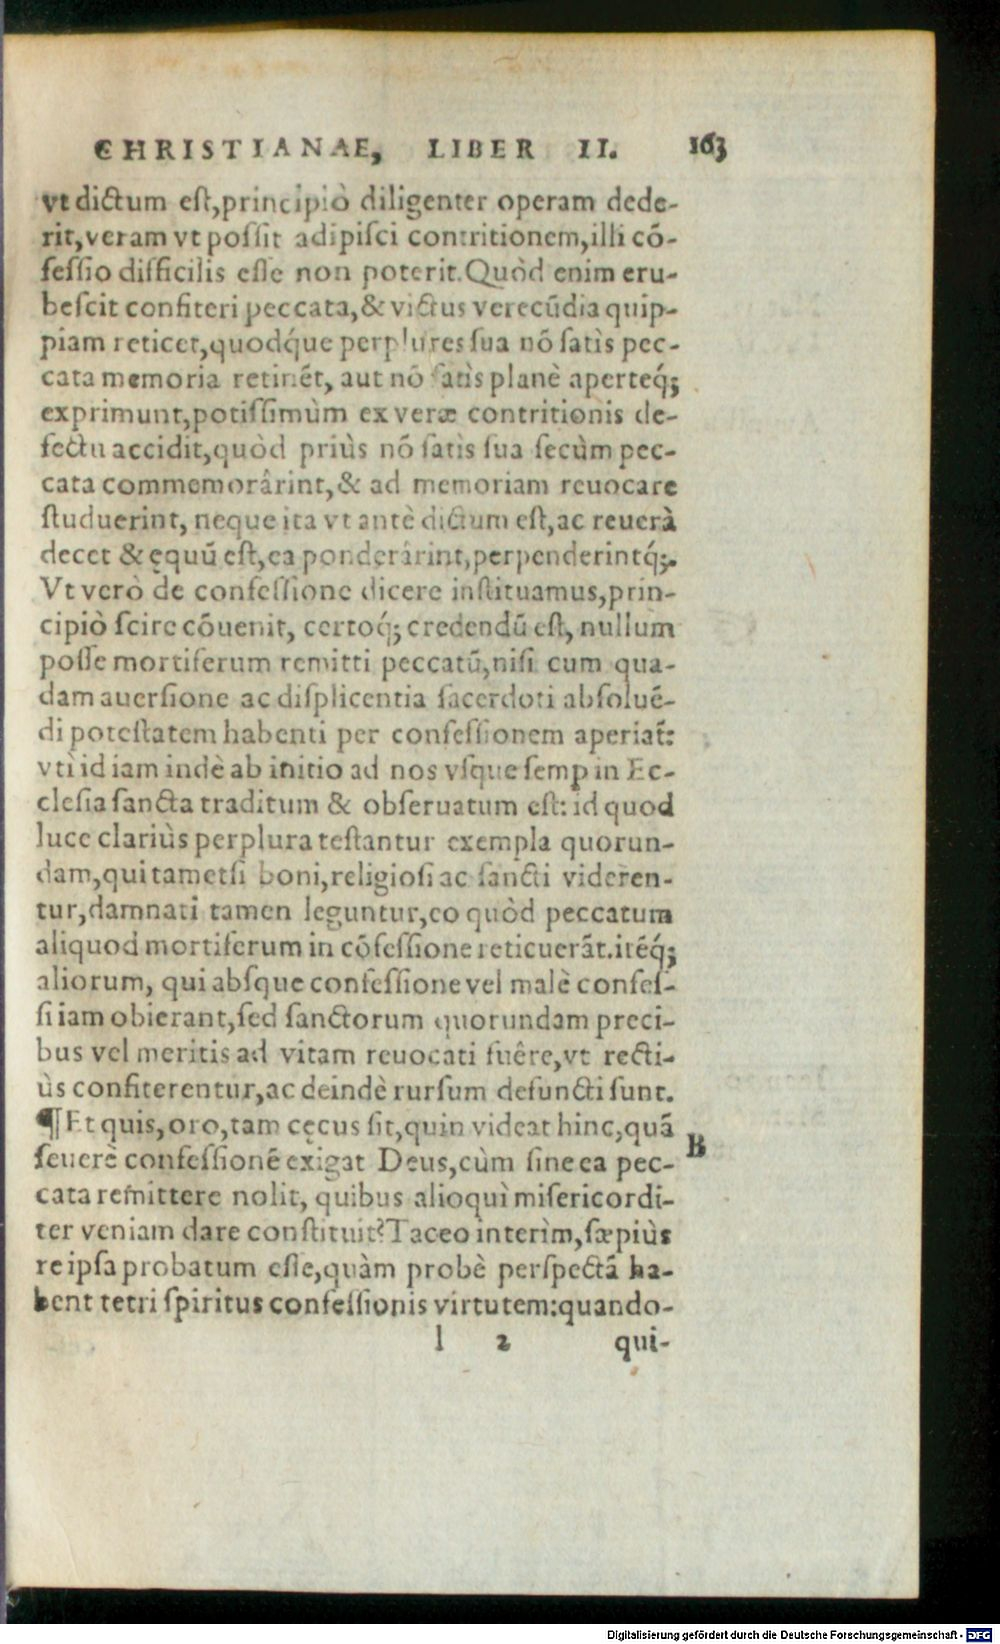 CHRISTIANAE, LIBER II. 163
vt dictum eſt,principiò diligenter operam dede-
rit,veram vt poſſit adipiſci contritionem,illi cō-
feſſio difficilis eſſe non poterit.Quòd enim eru-
beſcit confiteri peccata,& victus verecūdia quip-
piam reticet,quodq́ue perplures ſua nō ſatìs pec-
cata memoria retinēt, aut nō ſatìs planè aperteq́;
exprimunt,potiſſimùm ex veræ contritionis de-
fectu accidit,quòd priùs nō ſatìs ſua ſecùm pec-
cata commemorârint,& ad memoriam reuocare
ſtuduerint, neque ita vt antè dictum eſt,ac reuerà
decet & ęquū eſt,ea ponderârint,perpenderintq́;.
Vt verò de confeſſione dicere inſtituamus,prin-
cipiò ſcire cōuenit, certoq́; credendū eſt, nullum
poſſe mortiferum remitti peccatū,niſi cum qua-
dam auerſione ac diſplicentia ſacerdoti abſoluē-
di poteſtatem habenti per confeſſionem aperiat̃:
vtì id iam indè ab initio ad nos vſque ſemꝑ in Ec-
cleſia ſancta traditum & obſeruatum eſt: id quod
luce clariùs perplura teſtantur exempla quorun-
dam,qui tametſi boni,religioſi ac ſancti videren-
tur,damnati tamen leguntur,eo quòd peccatum
aliquod mortiferum in cōfeſſione reticuerāt.itēq́;
aliorum, qui abſque confeſſione vel malè confeſ-
ſi iam obierant,ſed ſanctorum quorundam preci-
bus vel meritis ad vitam reuocati fuêre,vt recti-
ùs confiterentur,ac deindè rurſum defuncti ſunt.
¶Et quis,oro,tam cęcus ſit,quin videat hinc,quā
ſeuerè confeſſionē exigat Deus,cùm ſine ea pec-
cata remittere nolit, quibus alioquì miſericordi-
ter veniam dare conſtituit?Taceo interìm,ſæpiùs
re ipſa probatum eſſe,quàm probè perſpectā ha-
bent tetri ſpiritus confeſſionis virtutem:quando-
l 2 qui-
B
Digitalisierung gefördert durch die Deutsche Forschungsgemeinschaft - DFG